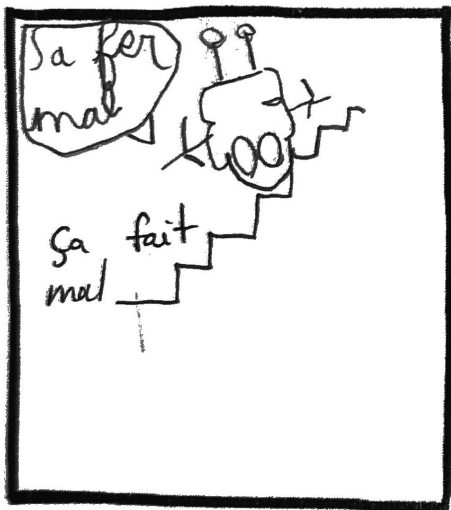 Sa fer
mal
Ça fait
mal